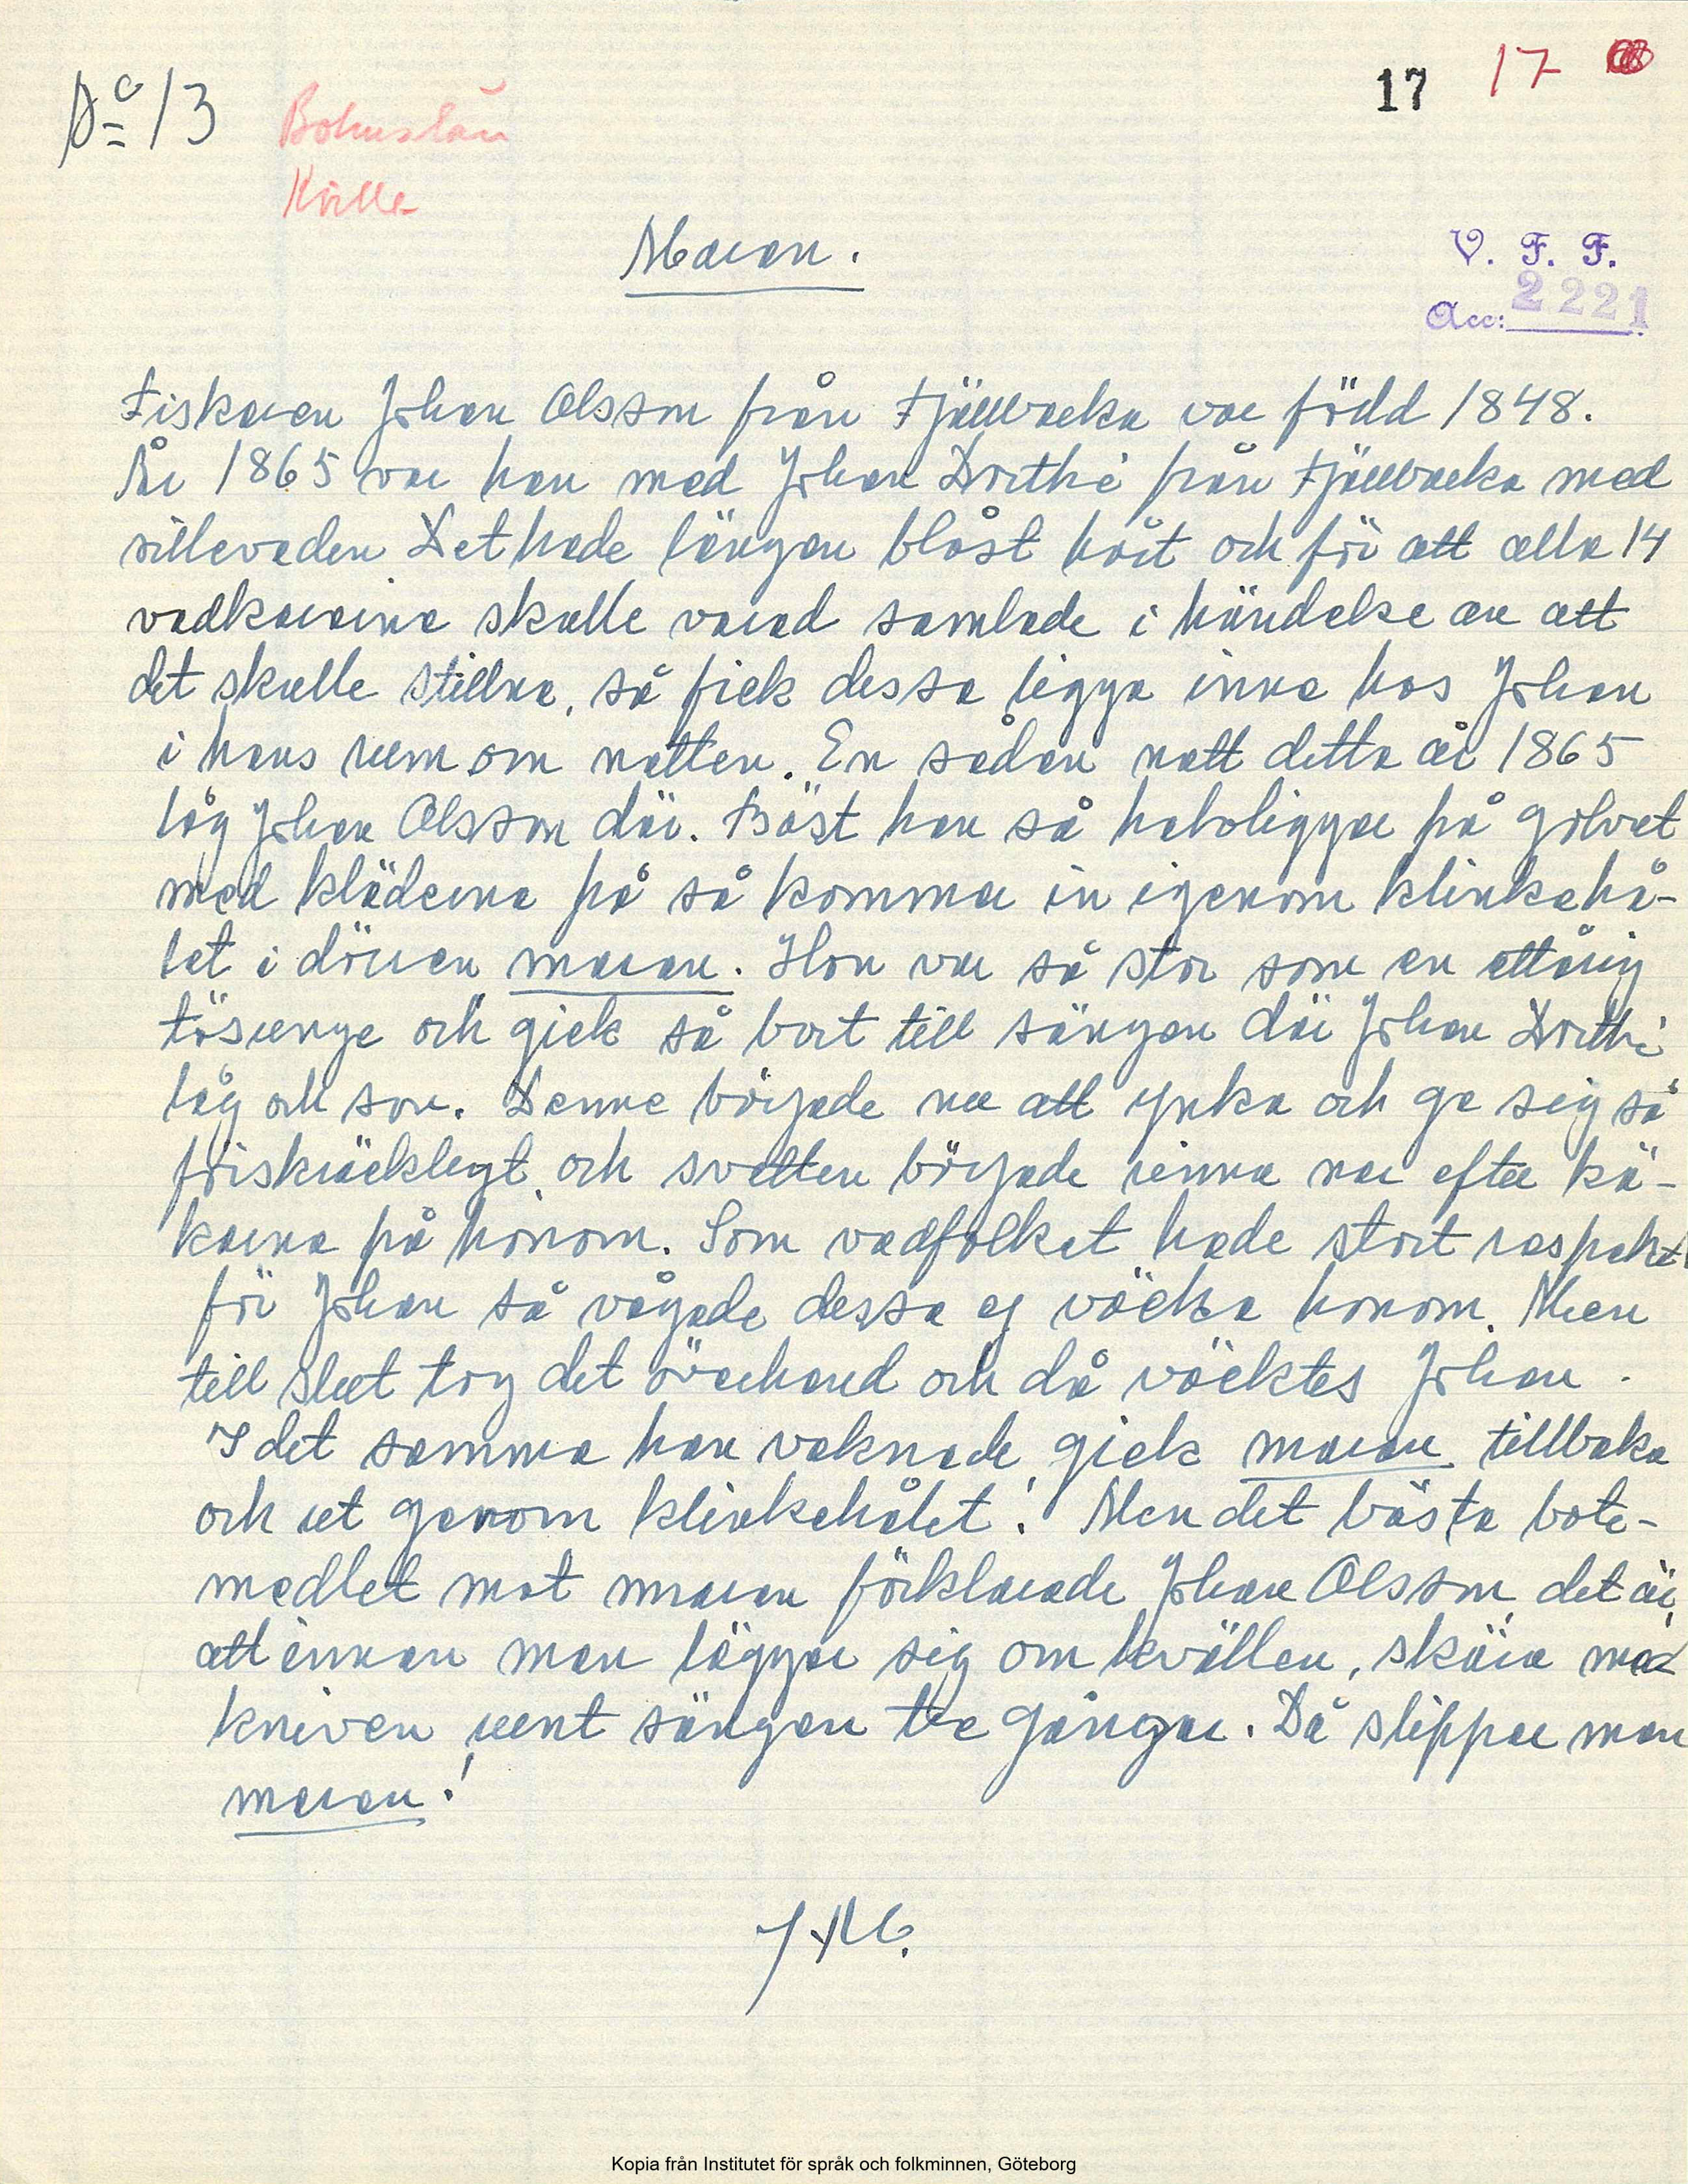 17 17
No 13 Bohuslän
Kville
Maran.
V. F. F.
Acc: 2221
Fiskaren Johan Olsson från Fjällbacka var född 1848.
År 1865 var han med Johan Dorthé från Fjällbacka med
sillevaden Det hade längan blåst hårt och för att alla 14
vadkararna skulle varad samlade i händelse av att
det skulle stillna, så fick dessa ligga inne hos Johan
i hans rum om natten. En sådan natt detta år 1865
låg Johan Olsson där. Bäst han så halvligger på golvet
med kläderna på så kommer in igenom klinkehå-
let i dörren maran. Hon var så stor som en ettårig
tösunge och gick så bort till sängen där Johan Dorthé
låg och sov. Denne började nu att ynka och ge sig så
förskräckligt, och svetten började rinna ner efter kä-
karna på honom. Som vadfolket hade stort respekt
för Johan så vågade dessa ej väcka honom. Men
till slut tog det överhand och då väcktes Johan.
I det samma han vaknade, gick maran tillbaka
och ut genom klinkehålet! Men det bästa bote-
medlet mot maran förklarade Johan Olsson, det är,
att innan man lägger sig om kvällen, skära med
kniven runt sängen tre gånger. Då slipper man
maran!
Kopia från Institutet för språk och folkminnen, Göteborg